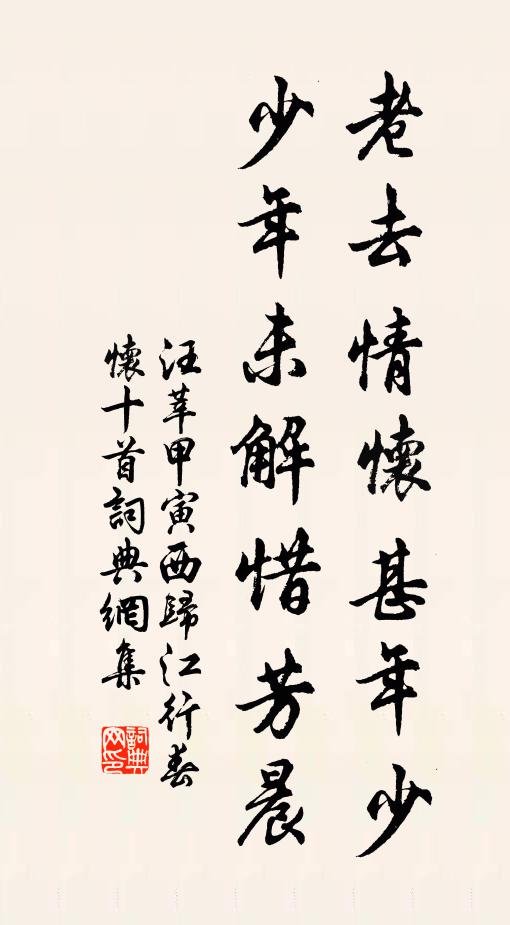 老去情懷甚年少
少年未解惜芳晨
汪莘甲寅西歸江行春
懷十首詞典網集
詞典
网印